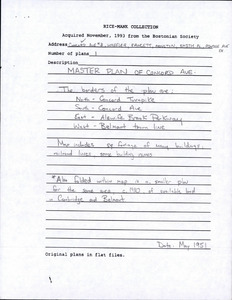 RICE-MARK COLLECTION
Acquired November, 1993 from the Bostonian Society
Address
Number of plans 1
Description
MASTER PLAN OF CONCORD AVE.
The borders of the plan are:
North - Concord Turnpike
South - Concord Ave
East - Alewife Brook Parkway
West - Belmont town line
Map includes sq. footage of many buildings,
railroad lines, some building names
*Also folded within map is a smaller plan
for the same area c. 1940 of available land
in Cambridge and Belmont
Date May 1951
Original plans in flat files.